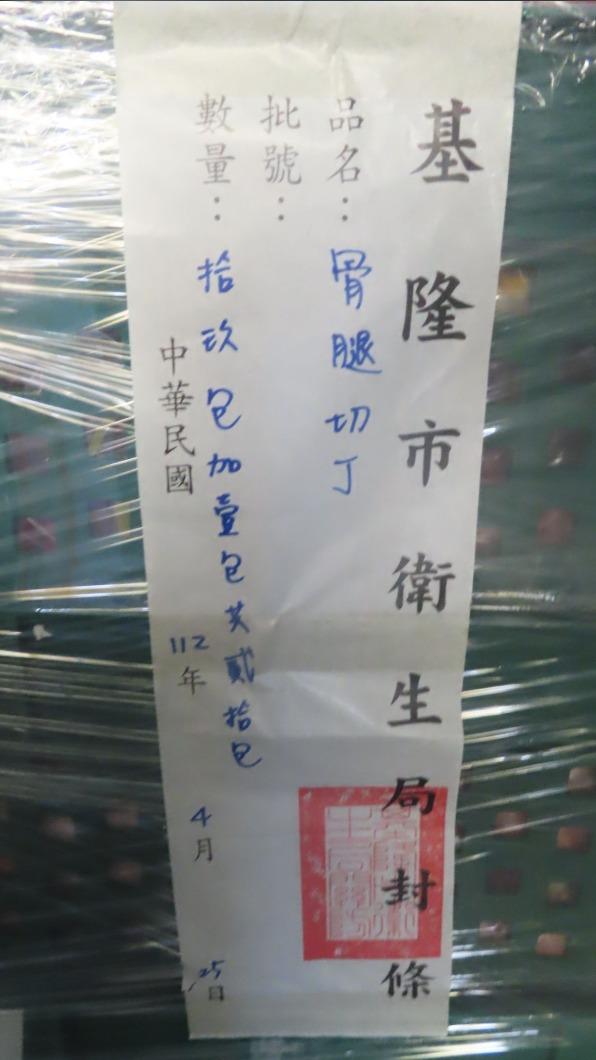 基隆市衛生局封條
品名：骨腿切丁
批號：
數量：拾玖包加壹包共貳拾包
中華民國112年4月25日